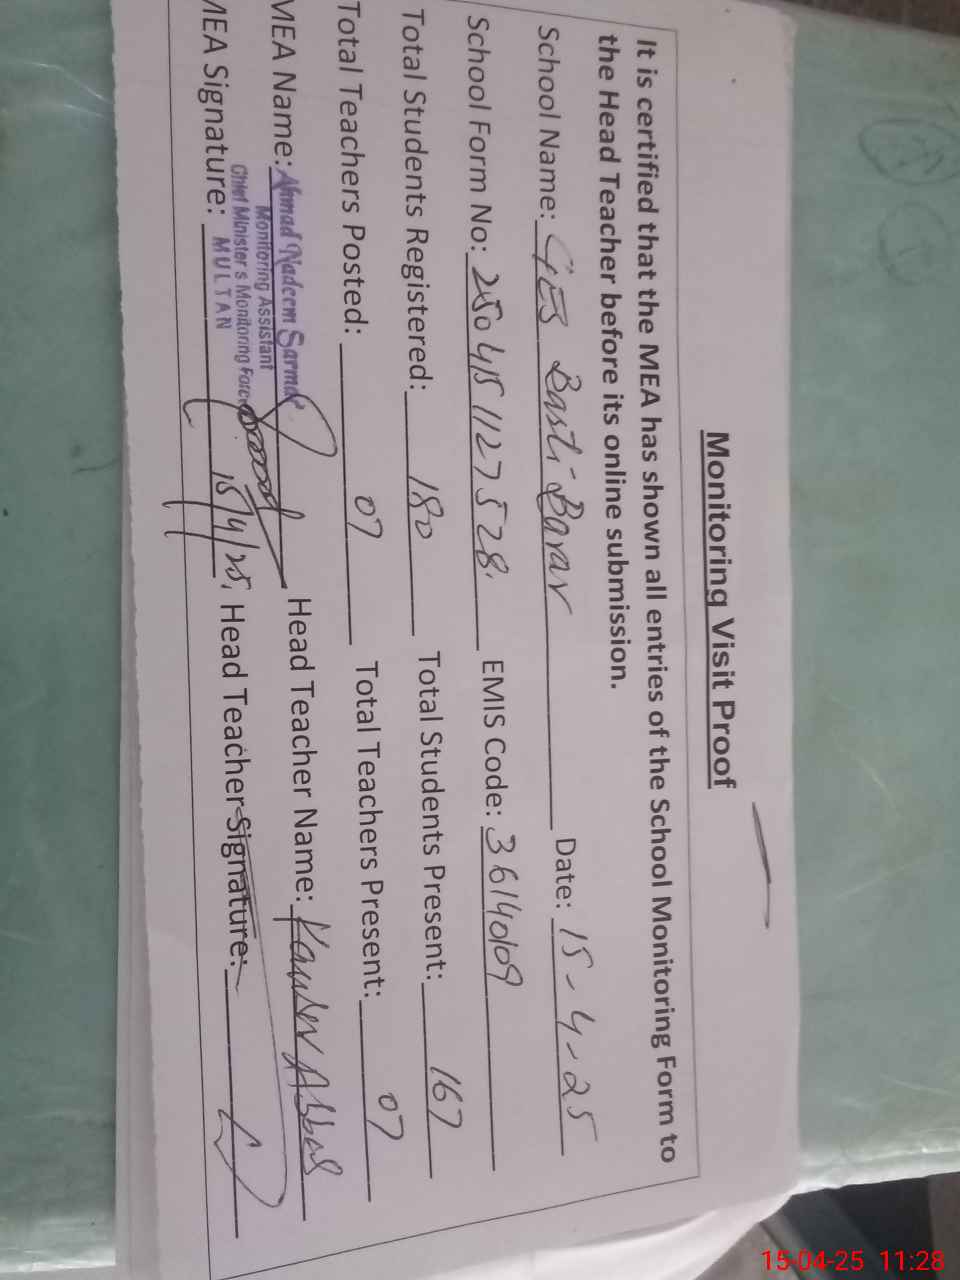 Monitoring Visit Proof
It is certified that the MEA has shown all entries of the School Monitoring Form to
the Head Teacher before its online submission.
School Name: GES Basti Barar Date: 15-4-25
School Form No: 2504151127528. EMIS Code: 36140109
Total Students Registered: 180 Total Students Present: 167
Total Teachers Posted: 07 Total Teachers Present: 07
MEA Name: Ahmad Nadeem Sarmad Head Teacher Name: Abbas
Monitoring Assistant
Chief Minister's Monitoring Force
MULTAN
MEA Signature: 15/4/25. Head Teacher Signature:
15-04-25 11:28